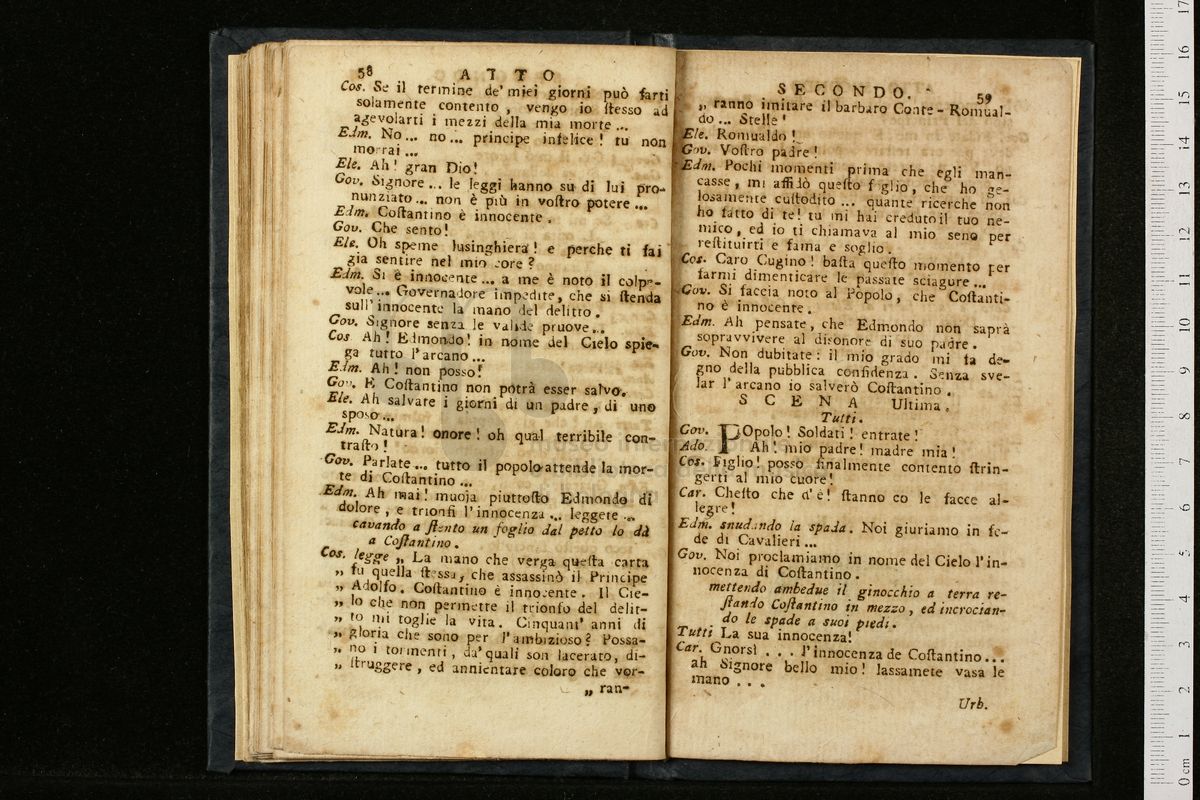 58 ATTO
Cos. Se il termine de' miei giorni può farti
solamente contento, vengo io ſteſſo ad
agevolarti i mezzi della mia morte ...
Edm. No ... no ... principe infelice! tu non
morrai ...
Ele. Ah! gran Dio!
Gov. Signore ... le leggi hanno su di lui pro-
nunziato ... non è più in voſtro potere ...
Edm. Coſtantino è innocente.
Gov. Che sento!
Ele. Oh speme lusinghiera! e perche ti fai
gia sentire nel mio core?
Edm. Si è innocente ... a me è noto il colpe-
vole ... Governadore impedite, che si ſtenda
sull' innocente la mano del delitto.
Gov. Signore senza le valide pruove ...
Cos Ah! Edmondo! in nome del Cielo spie-
ga tutto l'arcano ...
Edm. Ah! non posso!
Gov. E Coſtantino non potrà esser salvo.
Ele. Ah salvare i giorni di un padre, di uno
sposo ...
Edm. Natura! onore! oh qual terribile con-
traſto!
Gov. Parlate ... tutto il popolo attende la mor-
te di Coſtantino ...
Edm. Ah mai! muoja piuttoſto Edmondo di
dolore, e trionfi l'innocenza ... leggete ...
cavando a ſtento un foglio dal petto lo dà
a Coſtantino.
Cos. legge „ La mano che verga queſta carta
„ fu quella ſtessa, che assassinò il Principe
„ Adolfo. Coſtantino è innocente. Il Cie-
„ lo che non permette il trionfo del delit-
„ to mi toglie la vita. Cinquant' anni di
„ gloria che sono per l'ambizioso? Possa-
„ no i tormenti, da' quali son lacerato, di-
„ ſtruggere, ed annientare coloro che vor-
„ ran-
SECONDO. 59
„ ranno imitare il barbaro Conte - Romual-
do ... Stelle!
Ele. Romualdo!
Gov. Voſtro padre!
Edm. Pochi momenti prima che egli man-
casse, mi affidò queſto foglio, che ho ge-
losamente cuſtodito ... quante ricerche non
ho fatto di te! tu mi hai creduto il tuo ne-
mico, ed io ti chiamava al mio seno per
reſtituirti e fama e soglio.
Cos. Caro Cugino! baſta queſto momento per
farmi dimenticare le passate sciagure ...
Gov. Si faccia noto al Popolo, che Coſtanti-
no è innocente.
Edm. Ah pensate, che Edmondo non saprà
sopravvivere al disonore di suo padre.
Gov. Non dubitate: il mio grado mi fa de-
gno della pubblica confidenza. Senza sve-
lar l'arcano io salverò Coſtantino.
SCENA Ultima.
Tutti.
Gov. POpolo! Soldati! entrate!
Ado. Ah! mio padre! madre mia!
Cos. Figlio! posso finalmente contento ſtrin-
gerti al mio cuore!
Car. Cheſto che d'è! ſtanno co le facce al-
legre!
Edm. snudando la spada. Noi giuriamo in fe-
de di Cavalieri ...
Gov. Noi proclamiamo in nome del Cielo l'in-
nocenza di Coſtantino.
mettendo ambedue il ginocchio a terra re-
ſtando Coſtantino in mezzo, ed incrocian-
do le spade a suoi piedi.
Tutti La sua innocenza!
Car. Gnorsì ... l'innocenza de Coſtantino ...
ah Signore bello mio! lassamete vasa le
mano ...
Urb.
0 cm 1 2 3 4 5 6 7 8 9 10 11 12 13 14 15 16 17